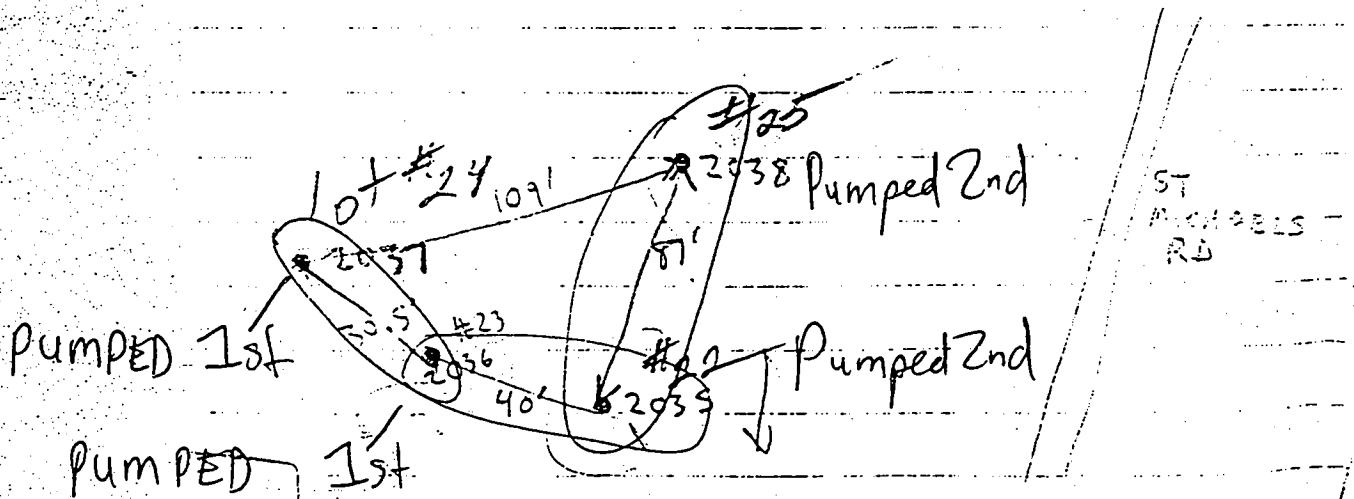 #25
Lot #24
109'
2038 Pumped 2nd
ST
MICHAELS
RD
2037
87'
PUMPED 1st
#23
#22
Pumped 2nd
2036
40'
2035
PUMPED 1st